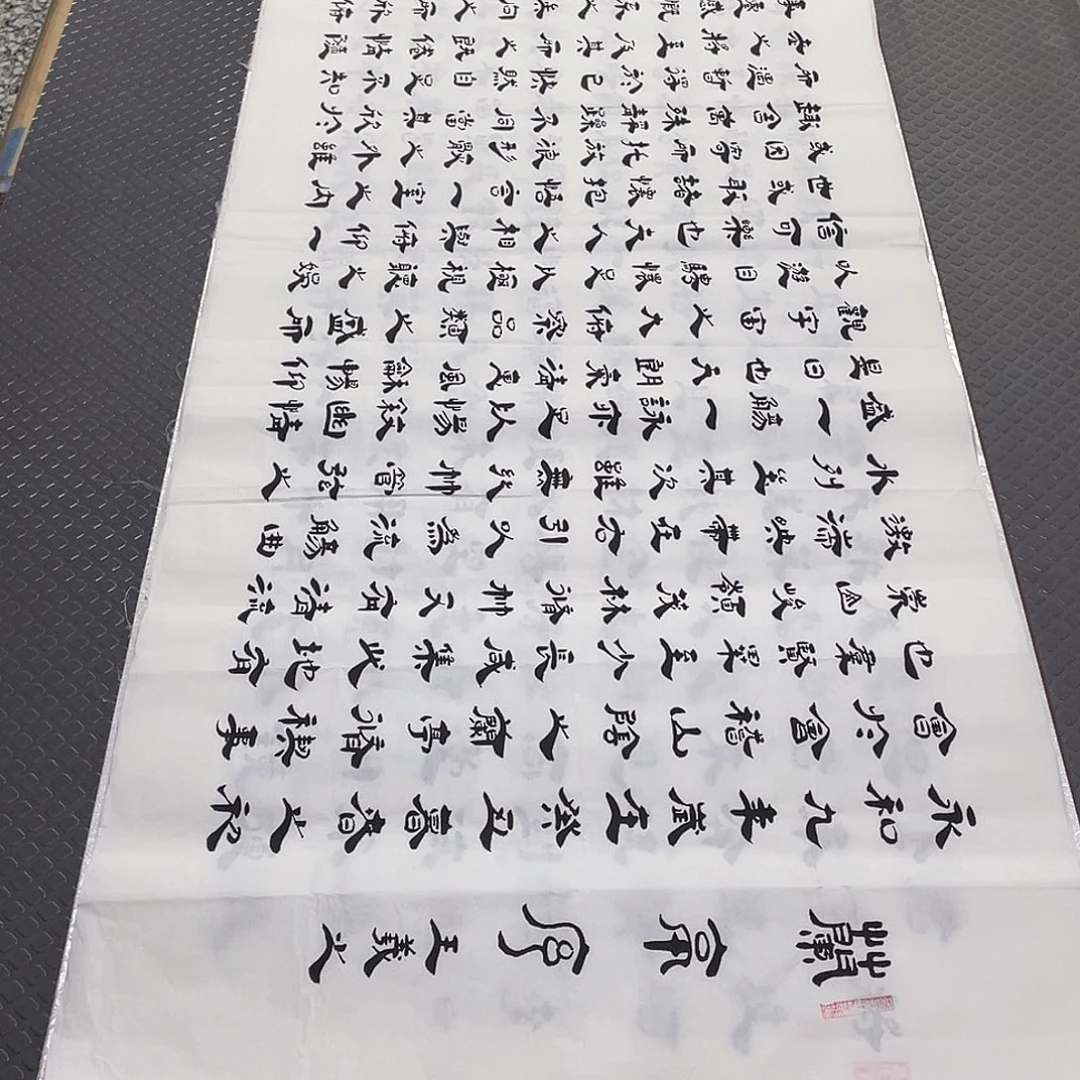 蘭亭序 王羲之
永和九年歲在癸丑暮春之初
會於會稽山陰之蘭亭脩禊事
也羣賢畢至少長咸集此地有
崇山峻領茂林脩竹又有清流
激湍映帶左右引以為流觴曲
水列坐其次雖無絲竹管弦之
盛一觴一詠亦足以暢敘幽情
是日也天朗氣清惠風和暢仰
觀宇宙之大俯察品類之盛所
以遊目騁懷足以極視聽之娛
信可樂也夫人之相與俯仰一
世或取諸懷抱悟言一室之內
或因寄所託放浪形骸之外雖
趣舍萬殊靜躁不同當其欣於
所遇暫得於己快然自足不知
老之將至及其所之既倦情隨
事遷感慨係之矣向之所欣俛